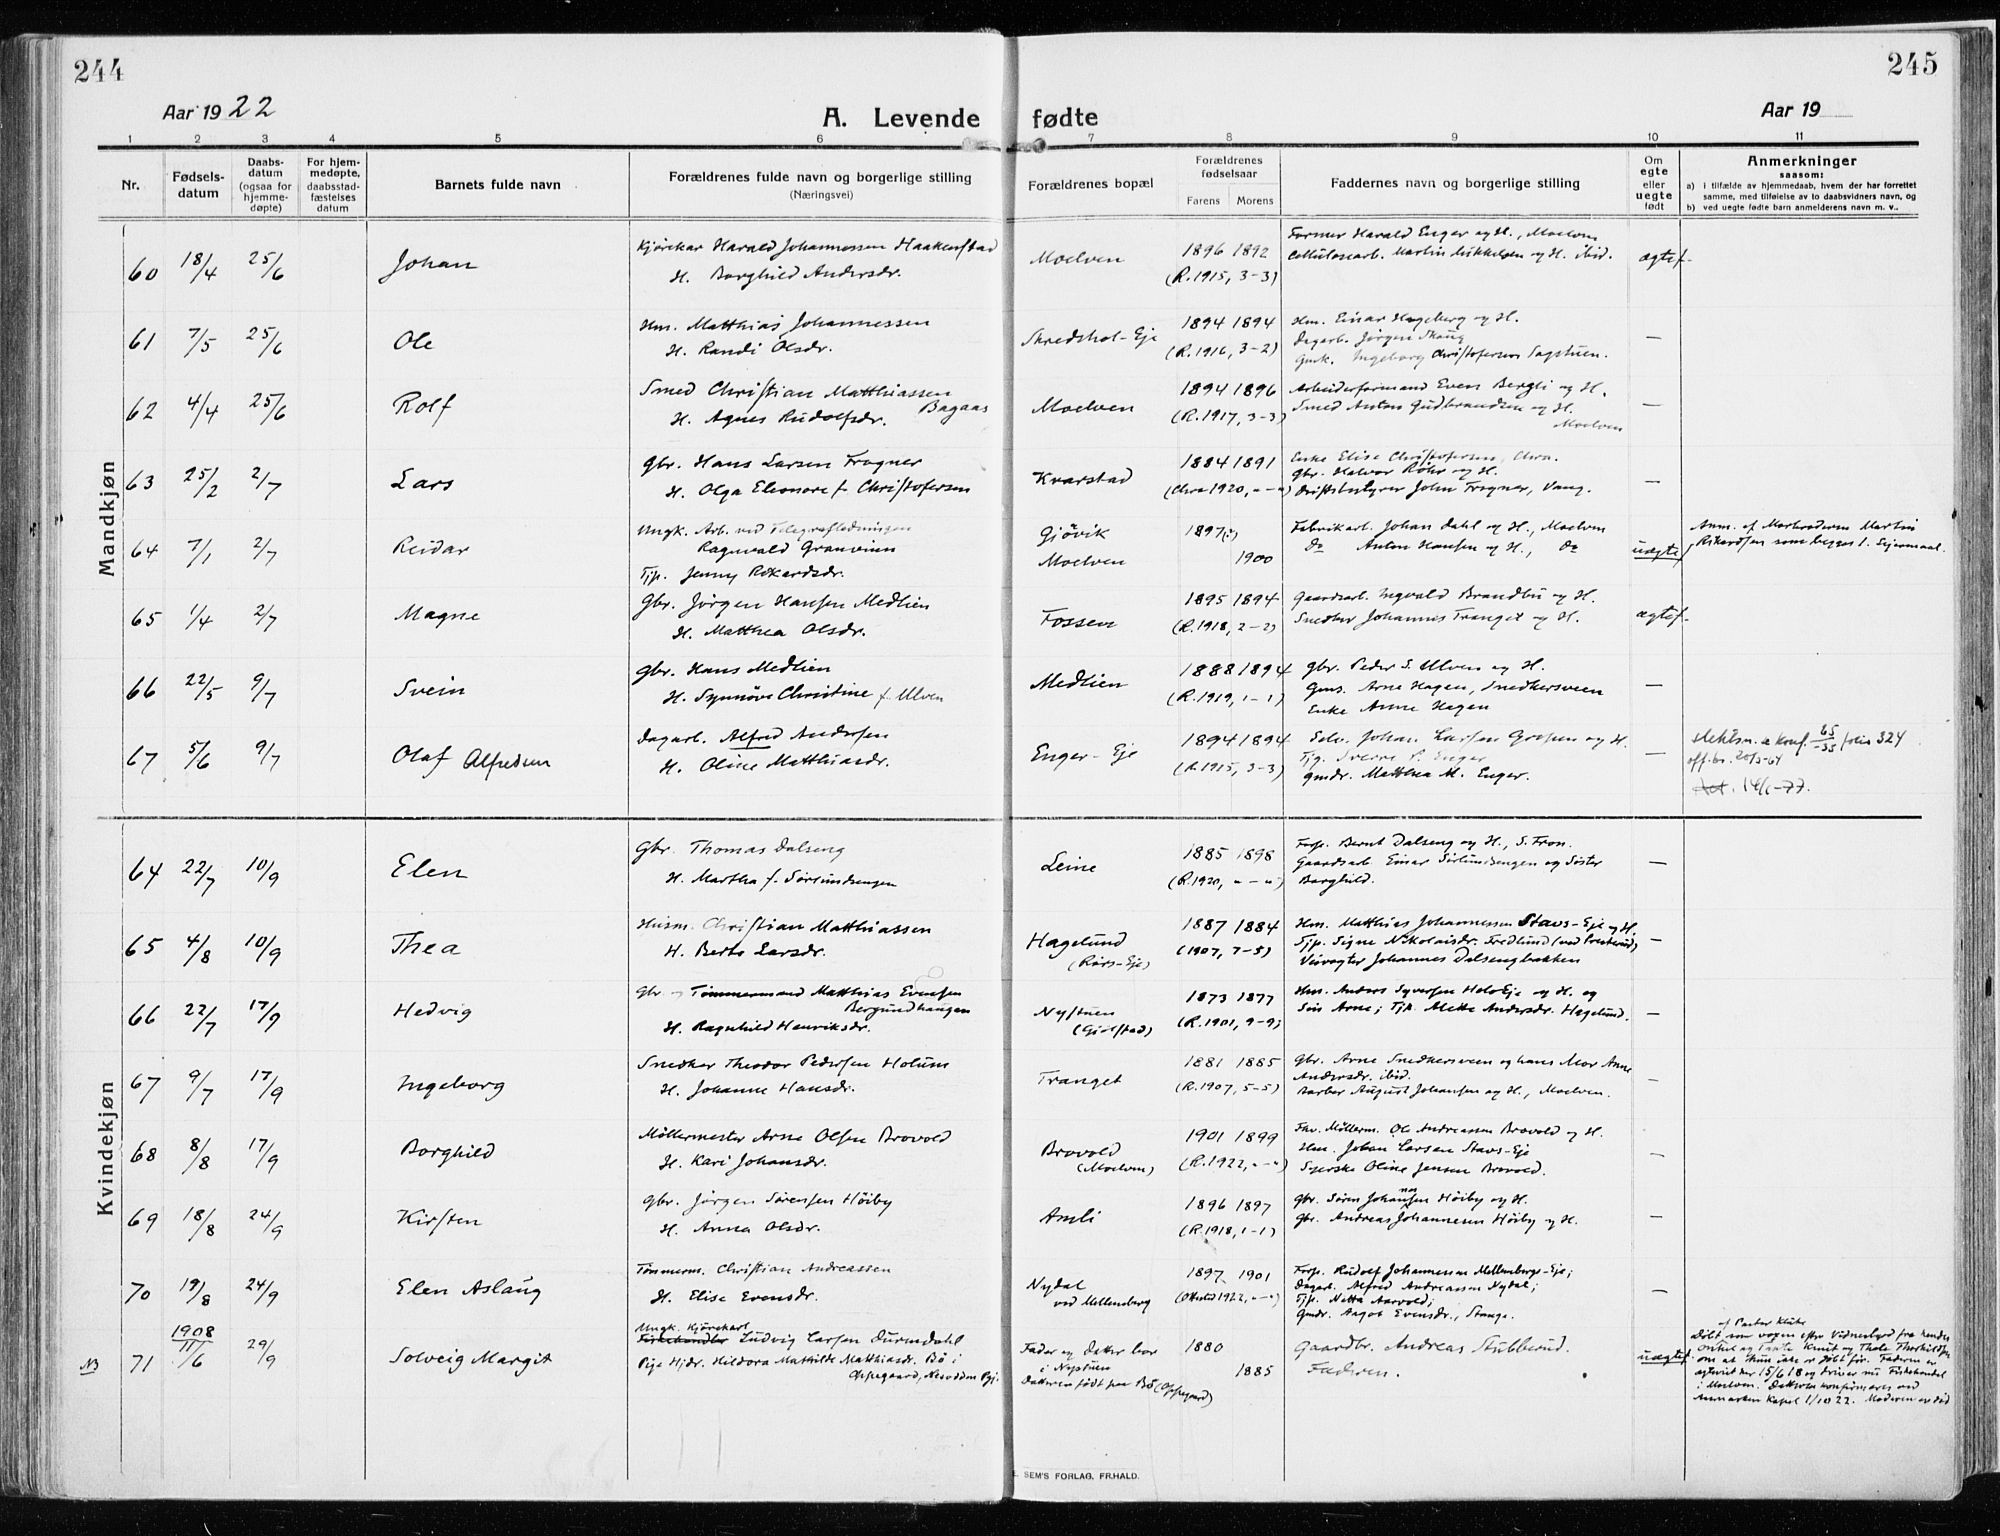 244
245
Aar 1922
A. Levende fødte
Aar 19
1 2 3 4 5 6 7 8 9 10 11
Nr.
Fødsels-
datum
Daabs-
datum
(ogsaa for
hjemme-
døpte)
For hjem-
medøpte,
daabsstad-
fæstelses
datum
Barnets fulde navn
Forældrenes fulde navn og borgerlige stilling
(Næringsvei)
Forældrenes bopæl
Forældrenes
fødselsaar
Farens Morens
Faddernes navn og borgerlige stilling
Om
egte
eller
uegte
født
Anmerkninger
saasom:
a) i tilfælde av hjemmedaab, hvem der har forrettet
samme, med tilføielse av to daabsvidners navn, og
b) ved uegte fødte barn anmelderens navn m. v..
Mandkjøn
60 18/4 25/6 Johan
Kjørekar Harald Johannessen Haakenstad
H. Borghild Andersdr.
Moelven
1896 1892
(R.1915, 3-3)
Former Harald Enger og H., Moelven
Cellulosearb. Martin Mikkelsen og H. ibid.
ægtef.
61 7/5 25/6 Ole
Hm. Matthias Johannessen
H. Randi Olsdr.
Skredshol-Eje
1894 1894
(R.1916, 3-2)
Hm. Einar Hageberg og H.
Dagarb. Jørgen Skaug
Gmk. Ingeborg Christofersen Sagstuen.
—
62 4/4 25/6 Rolf
Smed Christian Matthiassen
Bagaas
H. Agnes Rudolfsdr.
Moelven
1894 1896
(R.1917, 3-3)
Arbeiderformand Even Bergli og H.
Smed Anton Gudbrandsen og H.
Moelven
—
63 25/2 2/7 Lars
Gbr. Hans Larsen Frogner
H. Olga Eleonore f. Christofersen
Kvarstad
1884 1891
(Chra 1920, " - ")
Enke Elise Christofersen, Chra.
Gbr. Halvor Røhr og H.
Driftsbestyrer John Frogner, Vang.
—
64 7/1 2/7 Reidar
Ungk. Arb. ved Telegrafledningen
Ragnvald Granviun
Tjp. Jenny Rikardsdr.
Gjøvik
Moelven
1897(?)
1900
Fabrikarb. Johan Dahl og H., Moelven
Do Anton Hansen og H., Do
uægte
Anm. af Morbroderen Martin
Rikardsen som begges l. Lejermaal.
65 1/4 2/7 Magne
Gbr. Jørgen Hansen Medlien
H. Matthea Olsdr.
Fossen
1895 1894
(R.1918, 2-2)
Gaardsarb. Ingvald Brandbu og H.
Snedker Johannes Tranget og H.
ægtef.
66 22/5 9/7 Svein
Gbr. Hans Medlien
H. Synnöve Christine f. Ulven
Medlien
1888 1894
(R.1919, 1-1)
Gbr. Peder S. Ulven og H.
Gms. Arne Hagen, Snedkersveen
Enke Anne Hagen
—
67 5/6 9/7 Olaf Alfredsen
Dagarb. Alfred Andersen
H. Oline Matthiasdr.
Enger-Eje
1894 1894
(R.1915, 3-3)
Selv. Johan Larsen og H.
Tjg. Sverre P. Enger
Gmdr. Matthea M. Enger.
—
slektsn. a konf. 65/-35 folio 324
off.br. 20/3-64
14/1-77.
Kvindekjøn
64 22/7 10/9 Elen
Gbr. Thomas Dalseng
H. Martha f. Sørlundsengen
Leine
1885 1898
(R.1920, " - ")
Forp. Bernt Dalseng og H., S. Fron.
Gaardsarb. Einar Sörlundsengen og Søster
Borghild.
—
65 4/8 10/9 Thea
Husm. Christian Matthiassen
H. Berte Larsdr.
Hagelund
(Rørs-Eje)
1887 1884
(1907, 7-5)
Hm. Matthias Johannessen Stavs-Eje og H.
Tjp. Signe Nikolaisdr. Fredlund
Veivogter Johannes Dalsengbakken
—
66 22/7 17/9 Hedvig
Gbr. og Tömmermand Matthias Evensen
Bergundhaugen
H. Ragnhild Henriksdr.
Nystuen
(Gjerstad)
1873 1877
(R.1901, 9-9)
Hm. Anders Syversen HolsEje og H. og
Søn Arne; Tjp. Mette Andersdr. Hagelund.
—
67 9/7 17/9 Ingeborg
Snedker Theodor Pedersen Holum
H. Johanne Hansdr.
Tranget
1881 1885
(R.1907, 5-5)
Gbr. Arne Snedkersveen og hans Mor Anne
Andersdr. ibid.
Barber August Johansen og H., Moelven.
—
68 8/8 17/9 Borghild
Møllermester Arne Olsen Brovold
H. Kari Johansdr.
Brovold
(Moelven)
1901 1899
(R.1922, " - ")
Fhv. Möllerm. Ole Andreassen Brovold og H.
Hm. Johan Larsen Stavs-Eje
Syerske Oline Jensen Brovold.
—
69 18/8 24/9 Kirsten
Gbr. Jørgen Sørensen Høiby
H. Anna Olsdr.
Amli
1896 1897
(R.1918, 1-1)
Gbr. Søren Johannsen Høiby og H.
Gbr. Andreas Johannesen Høiby og H.
—
70 19/8 24/9 Elen Aslaug
Tömmerm. Christian Andreassen
H. Elise Evensdr.
Nydal
ved Mellemberg
1897 1901
(Ottestad 1922, " - ")
Forp. Rudolf Johannessen Mellembergs-Eje;
Dagarb. Alfred Andreassen Nydal;
Tjp. Netta Aarvold;
Gmdr. Aagot Evensdr., Stange.
—
NB 71 1908 11/6 29/9 Solveig Margit
Ungk. Kjørekarl
Fiskehandler Ludvig Larsen Duremdahl
Pige Hjdr. Hildora Mathilde Matthiasdr. Bö i
Oppegaard, Nesodden Pgj.
Fader og Datter bor
i Nystuen
Datteren født paa Bö (Oppegaard)
1880
1885
Gaardbr. Andreas Stubberud.
Faderen.
uægtef.
af Pastor Klüke
Döbt som voxen efter Vidnesbyrd fra hendes
Onkel og Tante Knut og Thale Thorkildsen
om at Hun ikke er döbt för. Faderen er
agtvist her 15/6 18 og driver nu Fiskehandel
i Moelven. Datteren konfirmeres ved
Aasmarken Kapel 1/10 22. Moderen er död
SEM'S FORLAG, FR.HALD.